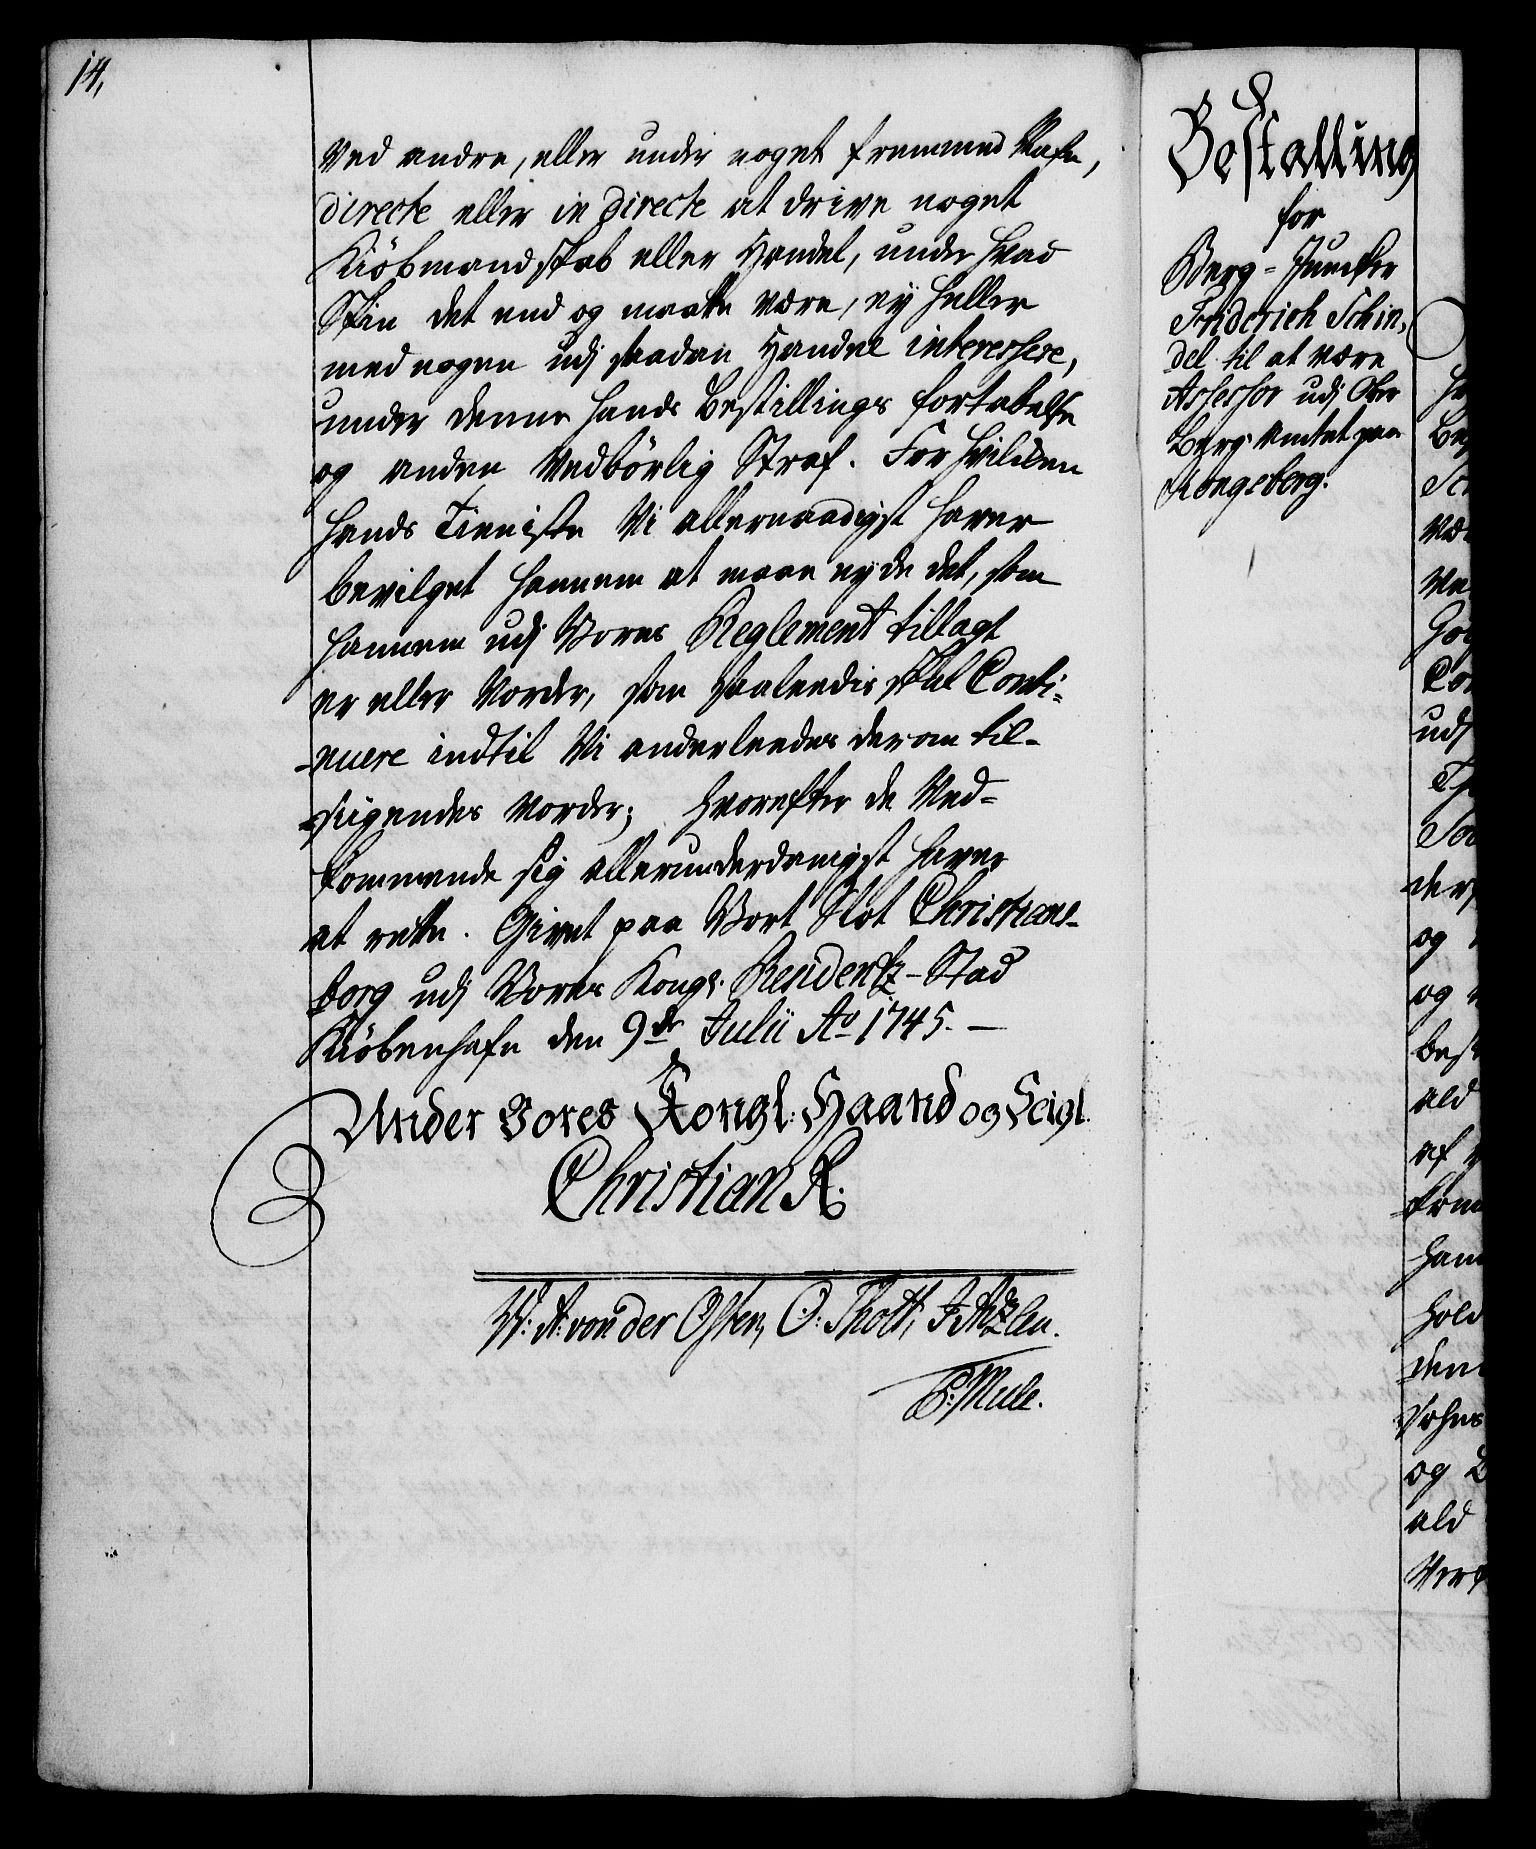 14,
Ved andre, eller under noget fremmed Nafn,
directe eller indirecte at drive noget
Kiöbmandskab eller Handel, under hvad
Skin det end og maatte være, ey heller
med nogen udj saadan Handel interessere,
under denne hands Bestillings fortabelse
og anden Vedbörlig Straf. For hvilcken
hands Tieniste Vi allernaadigst haver
bevilget hannem at maae nyde det, som
hannem udj Vores Reglement tillagt
er eller Vorder, som saaledis skal Conti-
nuere indtil Vi anderleedes derom til-
sigendes Vorder; hvorefter de Ved-
kommende sig allerunderdanigst haver
at rette. Givet paa Vort Slot Christians-
borg udj Vores Kongl. Residentz-Stad
Kiöbenhafn den 9de Julii Ao 1745.
Under Vores Kongl: Haand og Seigl.
Christian R.
W: A: von der Osten, O: Thott, F Holtzten.
E: Mule.
Bestalling
for
Berg-Juncker
Friderich Schin-
del til at være
Assessor udj Ober
Berg Amtet paa
Kongsberg.
Be
Sch
Væ
Ve
God
Con
udj
Th
Sou
der
og
og
best
ald
af
frem
ham
hold
den
og B
ald